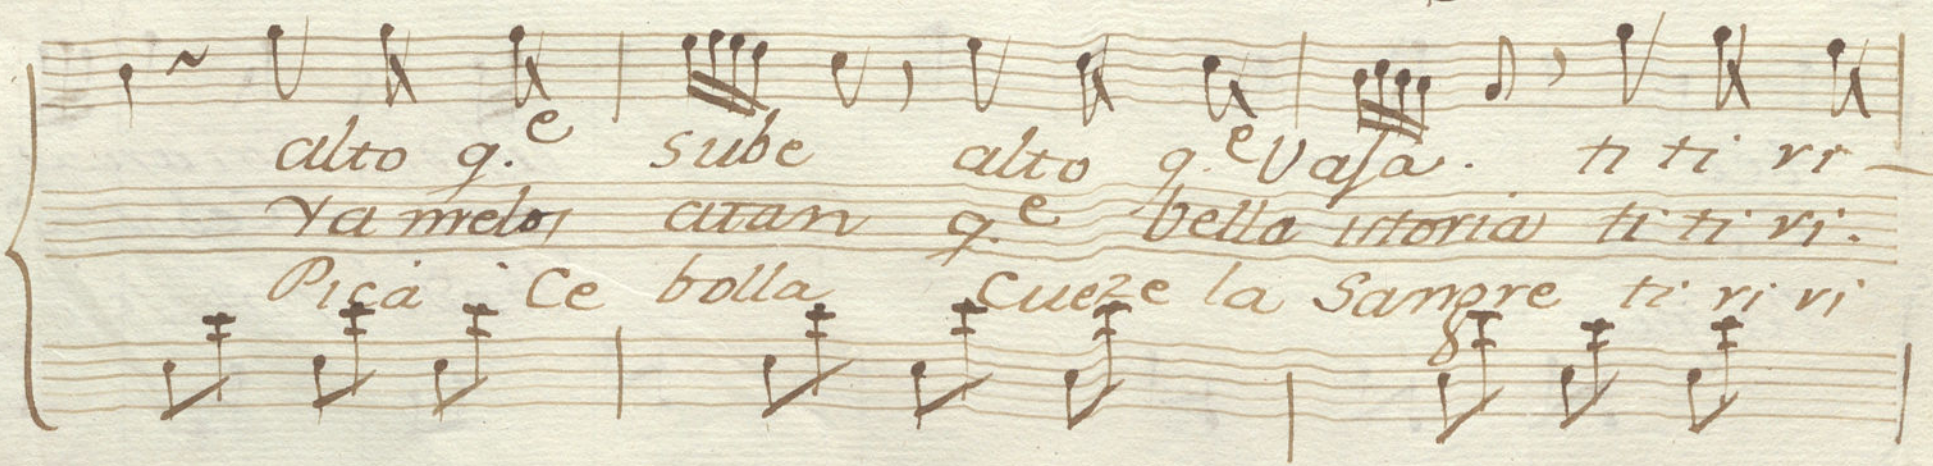 alto q.e sube alto q.e Vaja. ti ti ri
Ya melo, atan q.e bella istoria ti ti ri.
Pica Ce bolla Cueze la Sangre ti ri ri
8